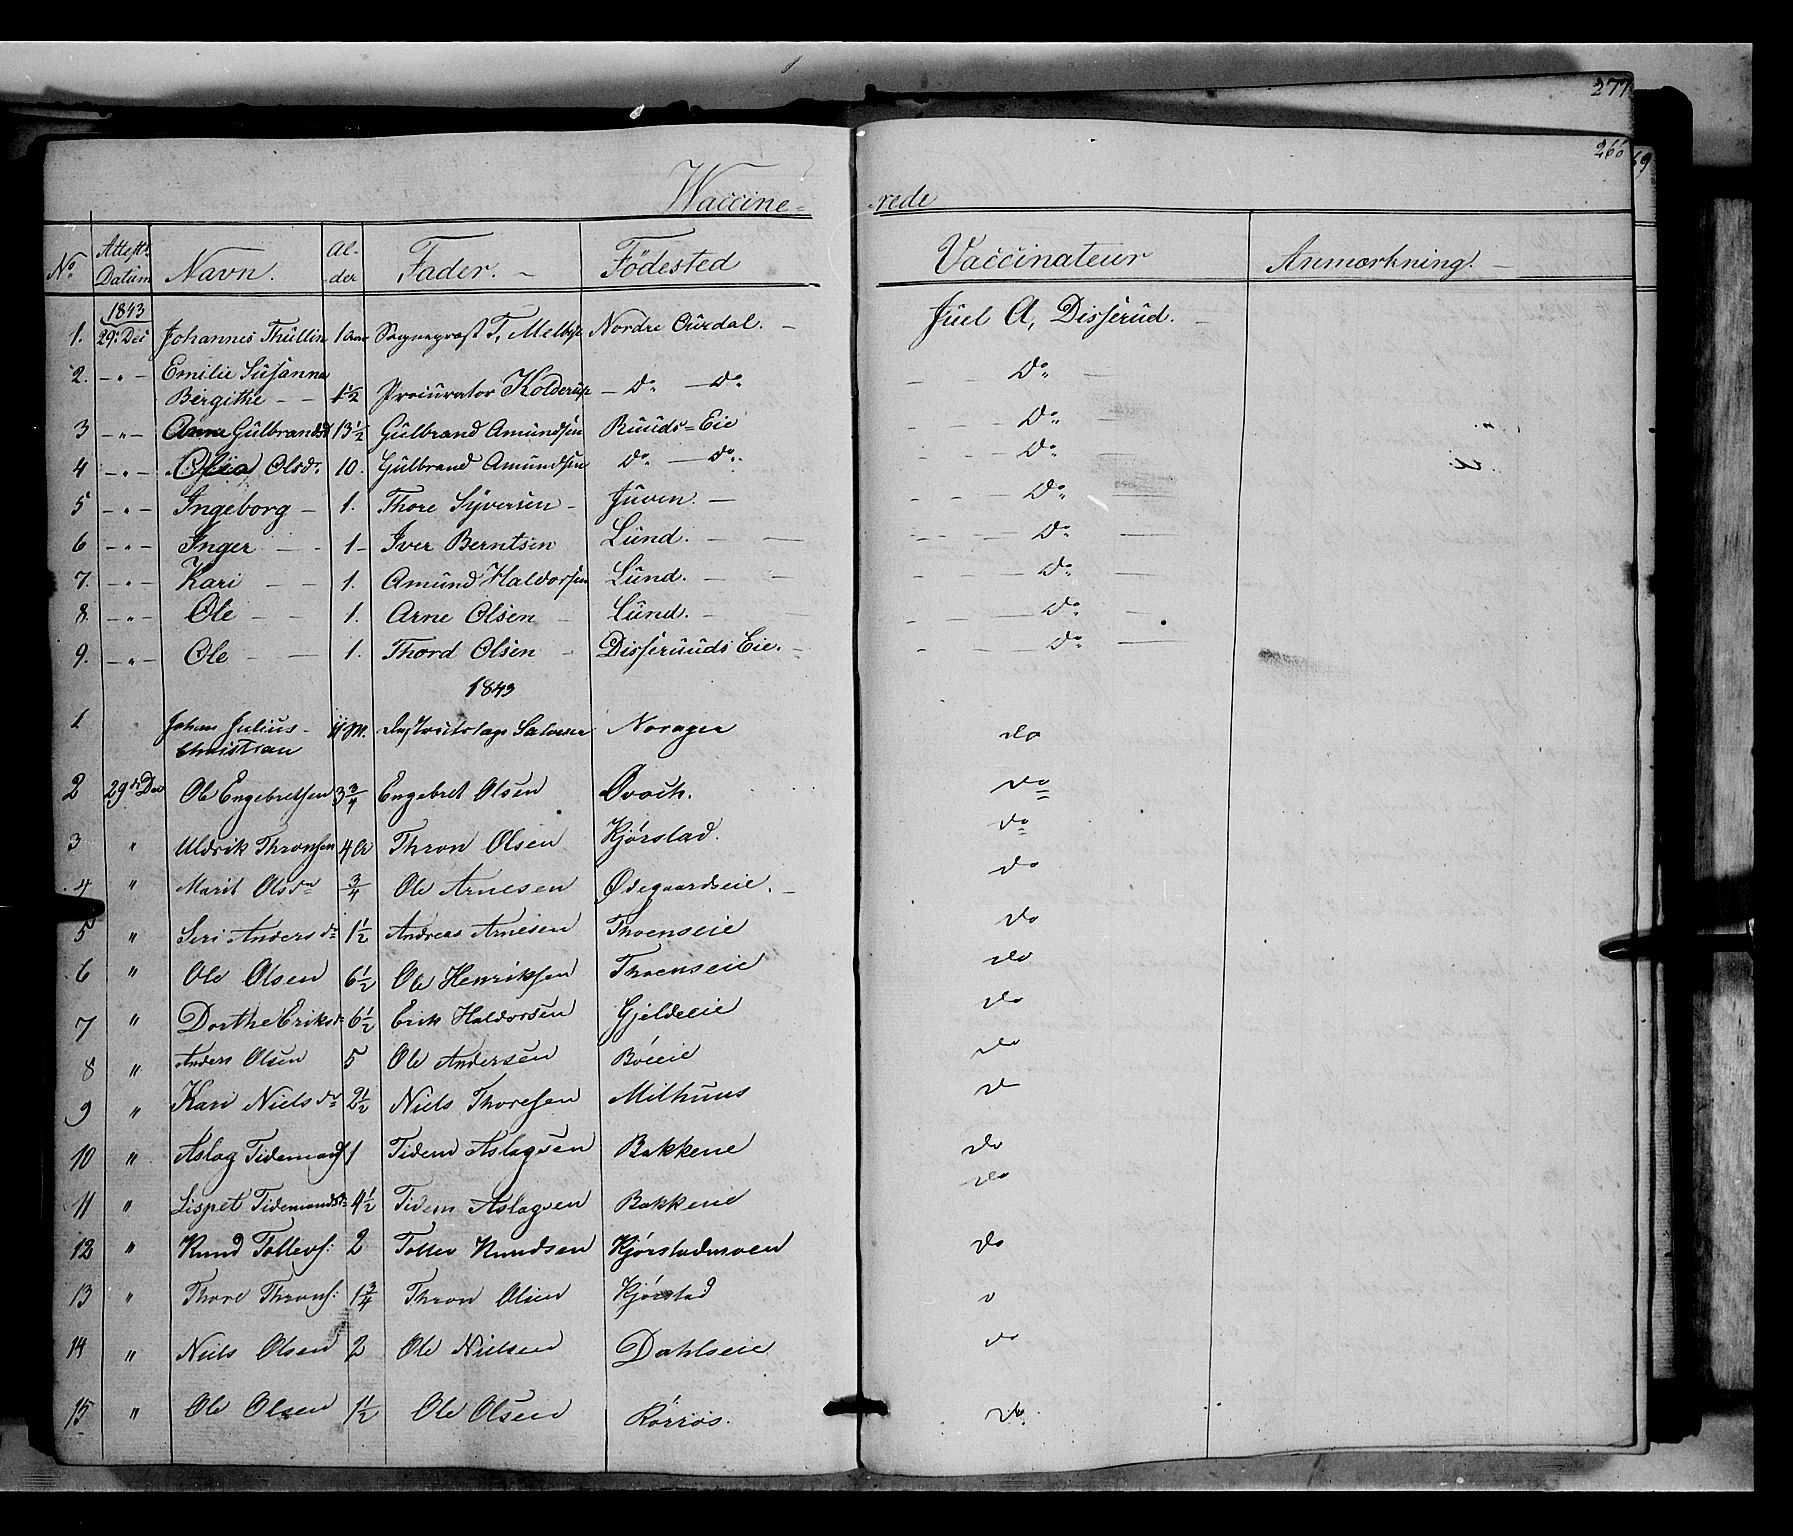 277
266
69
Waccine- rede
No Attest. Datum Navn. Al-der Fader. Födested Vaccinateur Anmærkning.
1843
1. 29. Dec Johannes Thullin 1 Sogneprest T. Melbye Nordre Ourdal. Juel A, Disserud.
2. - " - Emilie Susanna
Bergithe 1½ Procurator Kolderup do do do
3 - " - Anne Gulbrandsd 13½ Gulbrand Amundsen Ruuds=Eie do
4 - " - Olsdr. 10. Gulbrand Amundsen do do do
5 - " - Ingeborg 1. Thore Syversen Juven. do
6 - " - Inger 1 Iver Berntsen Lund. do
7. - " - Kari 1. Amund Haldorsen Lund. do
8. - " - Ole 1. Arne Olsen Lund. do
9. - " - Ole 1. Thord Olsen Disseruuds Eie. do
1843
1 Johan Julius
Christian M. Salvesen Norager do
2 29de Dec Ole Engebretsen 3¾ Engebret Olsen do
3 " Uldrik Thronsen 4 Thron Olsen Kjørstad. do
4 " Marit Olsdr ¾ Ole Arnesen Ødegaardseie. do
5 " Siri Andersdr 1½ Andreas Arnesen Thoenseie do
6 " Ole Olsen 6½ Ole Henriksen Thoenseie do
7 " Dorthe Eriksdr 6½ Erik Haldorsen Gjeldeeie do
8 " Anders Olsen 5 Ole Andersen Böeeie do
9 " Kari Nielsdr 2½ Niels Thoresen Milhuus d
10 " Aslag Tidemands 1 Tidem Aslagsen Bakkene do
11 " Lispet Tidemandsdr 4½ Tidem Aslagsen Bakkene do
12 " Knud Tollevs: 2 Tollev Knudsen Kjørstadmoen do
13 " Thore Throns: 1¾ Thron Olsen Kjørstad o
14 " Niels Olsen 2 Ole Nielsen Dahlseie do
15 " Ole Olsen 1½ Ole Olsen do.